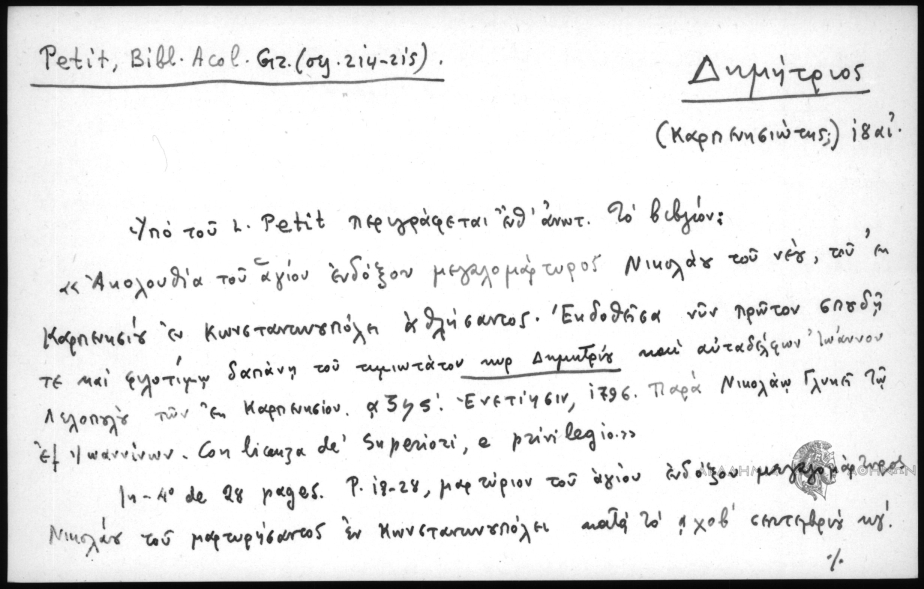 Petit, Bibl. Acol. Gr. (σγ. 214-215).
Δημήτριος
(Καρπενησιώτης;) 18 αἰ.
Ὑπό τοῦ L. Petit περιγράφεται ἔνθ' ἀνωτ. τό βιβλίον:
«Ἀκολουθία τοῦ ἁγίου ἐνδόξου μεγαλομάρτυρος Νικολάου τοῦ νέου, τοῦ ἐκ
Καρπενησίου ἐν Κωνσταντινουπόλει ἀθλήσαντος. Ἐκδοθεῖσα νῦν πρῶτον σπουδῇ
τε καί φιλοτίμῳ δαπάνῃ τοῦ τιμιωτάτου κυρ Δημητρίου καί αὐταδέλφων Ἰωάννου
τῶν ἐκ Καρπενησίου. αψϟς΄. Ἐνετίῃσιν, 1796. Παρά Νικολάῳ Γλυκεῖ τῷ
ἐξ Ἰωαννίνων. Con licenza de' Superiori, e privilegio.»
In-4º de 28 pages. P. 18-28, μαρτύριον τοῦ ἁγίου ἐνδόξου μεγαλομάρτυρος
Νικολάου τοῦ μαρτυρήσαντος ἐν Κωνσταντινουπόλει κατά τό ͵αχοβ΄ σεπτεμβρίου κγ΄.
·/.